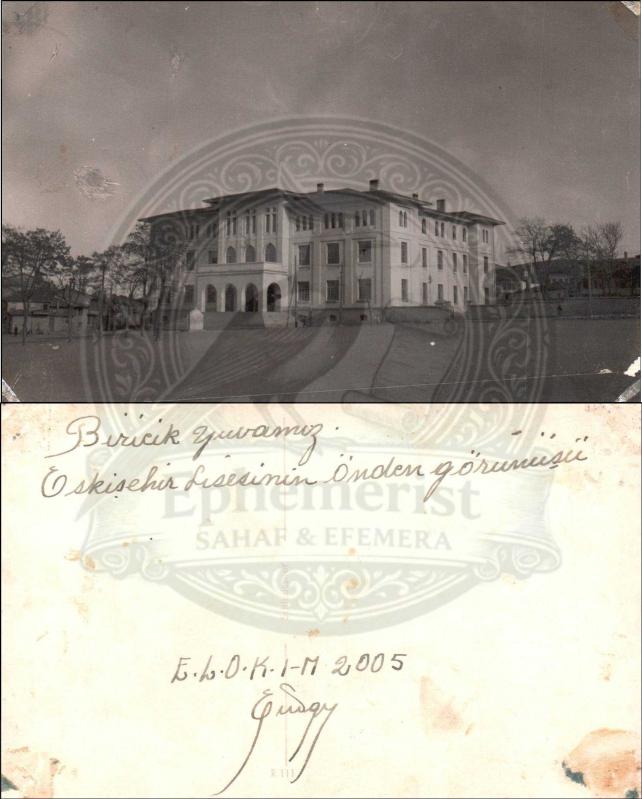 Biricik yuvamız.
Eskişehir Lisesinin Önden görünüşü
Ephemerist
SAHAF & EFEMERA
E.L.O.K.I-M 2005